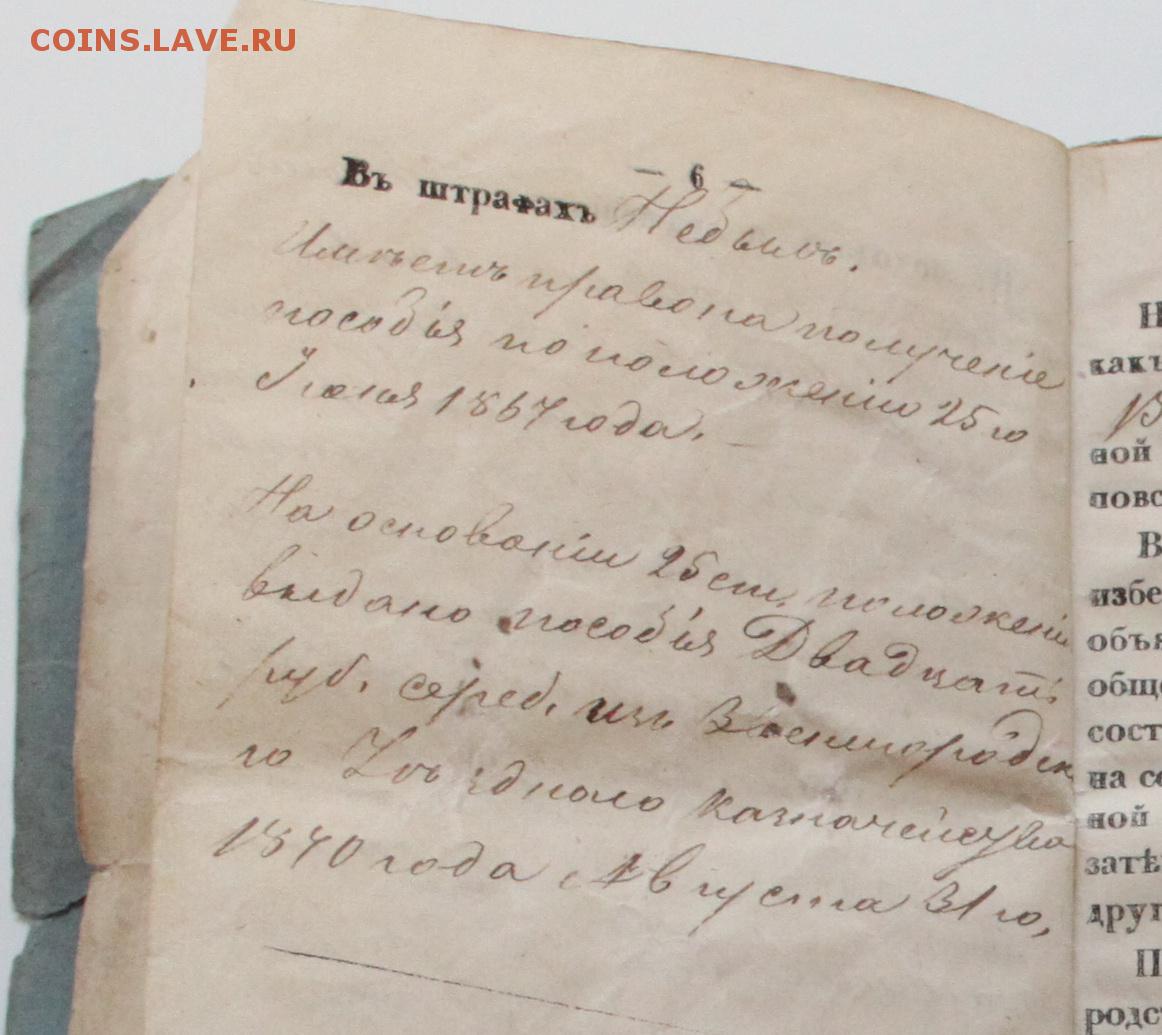 COINS.LAVE.RU
— 6 —
Въ штрафахъ Небылъ.
Имѣетъ право на получение
пособія по положенію 25го
Іюня 1867 года.
На основаніи 25 ст. положенія
выдано пособія Двадцать
руб. сереб. изъ Звенигородск
го Уѣзднаго казначейства
1870 года Августа 31го,
Н
какъ
В
ной
повс
В
избе
объя
общ
сост
на се
ной
затѣ
друг
П
родст